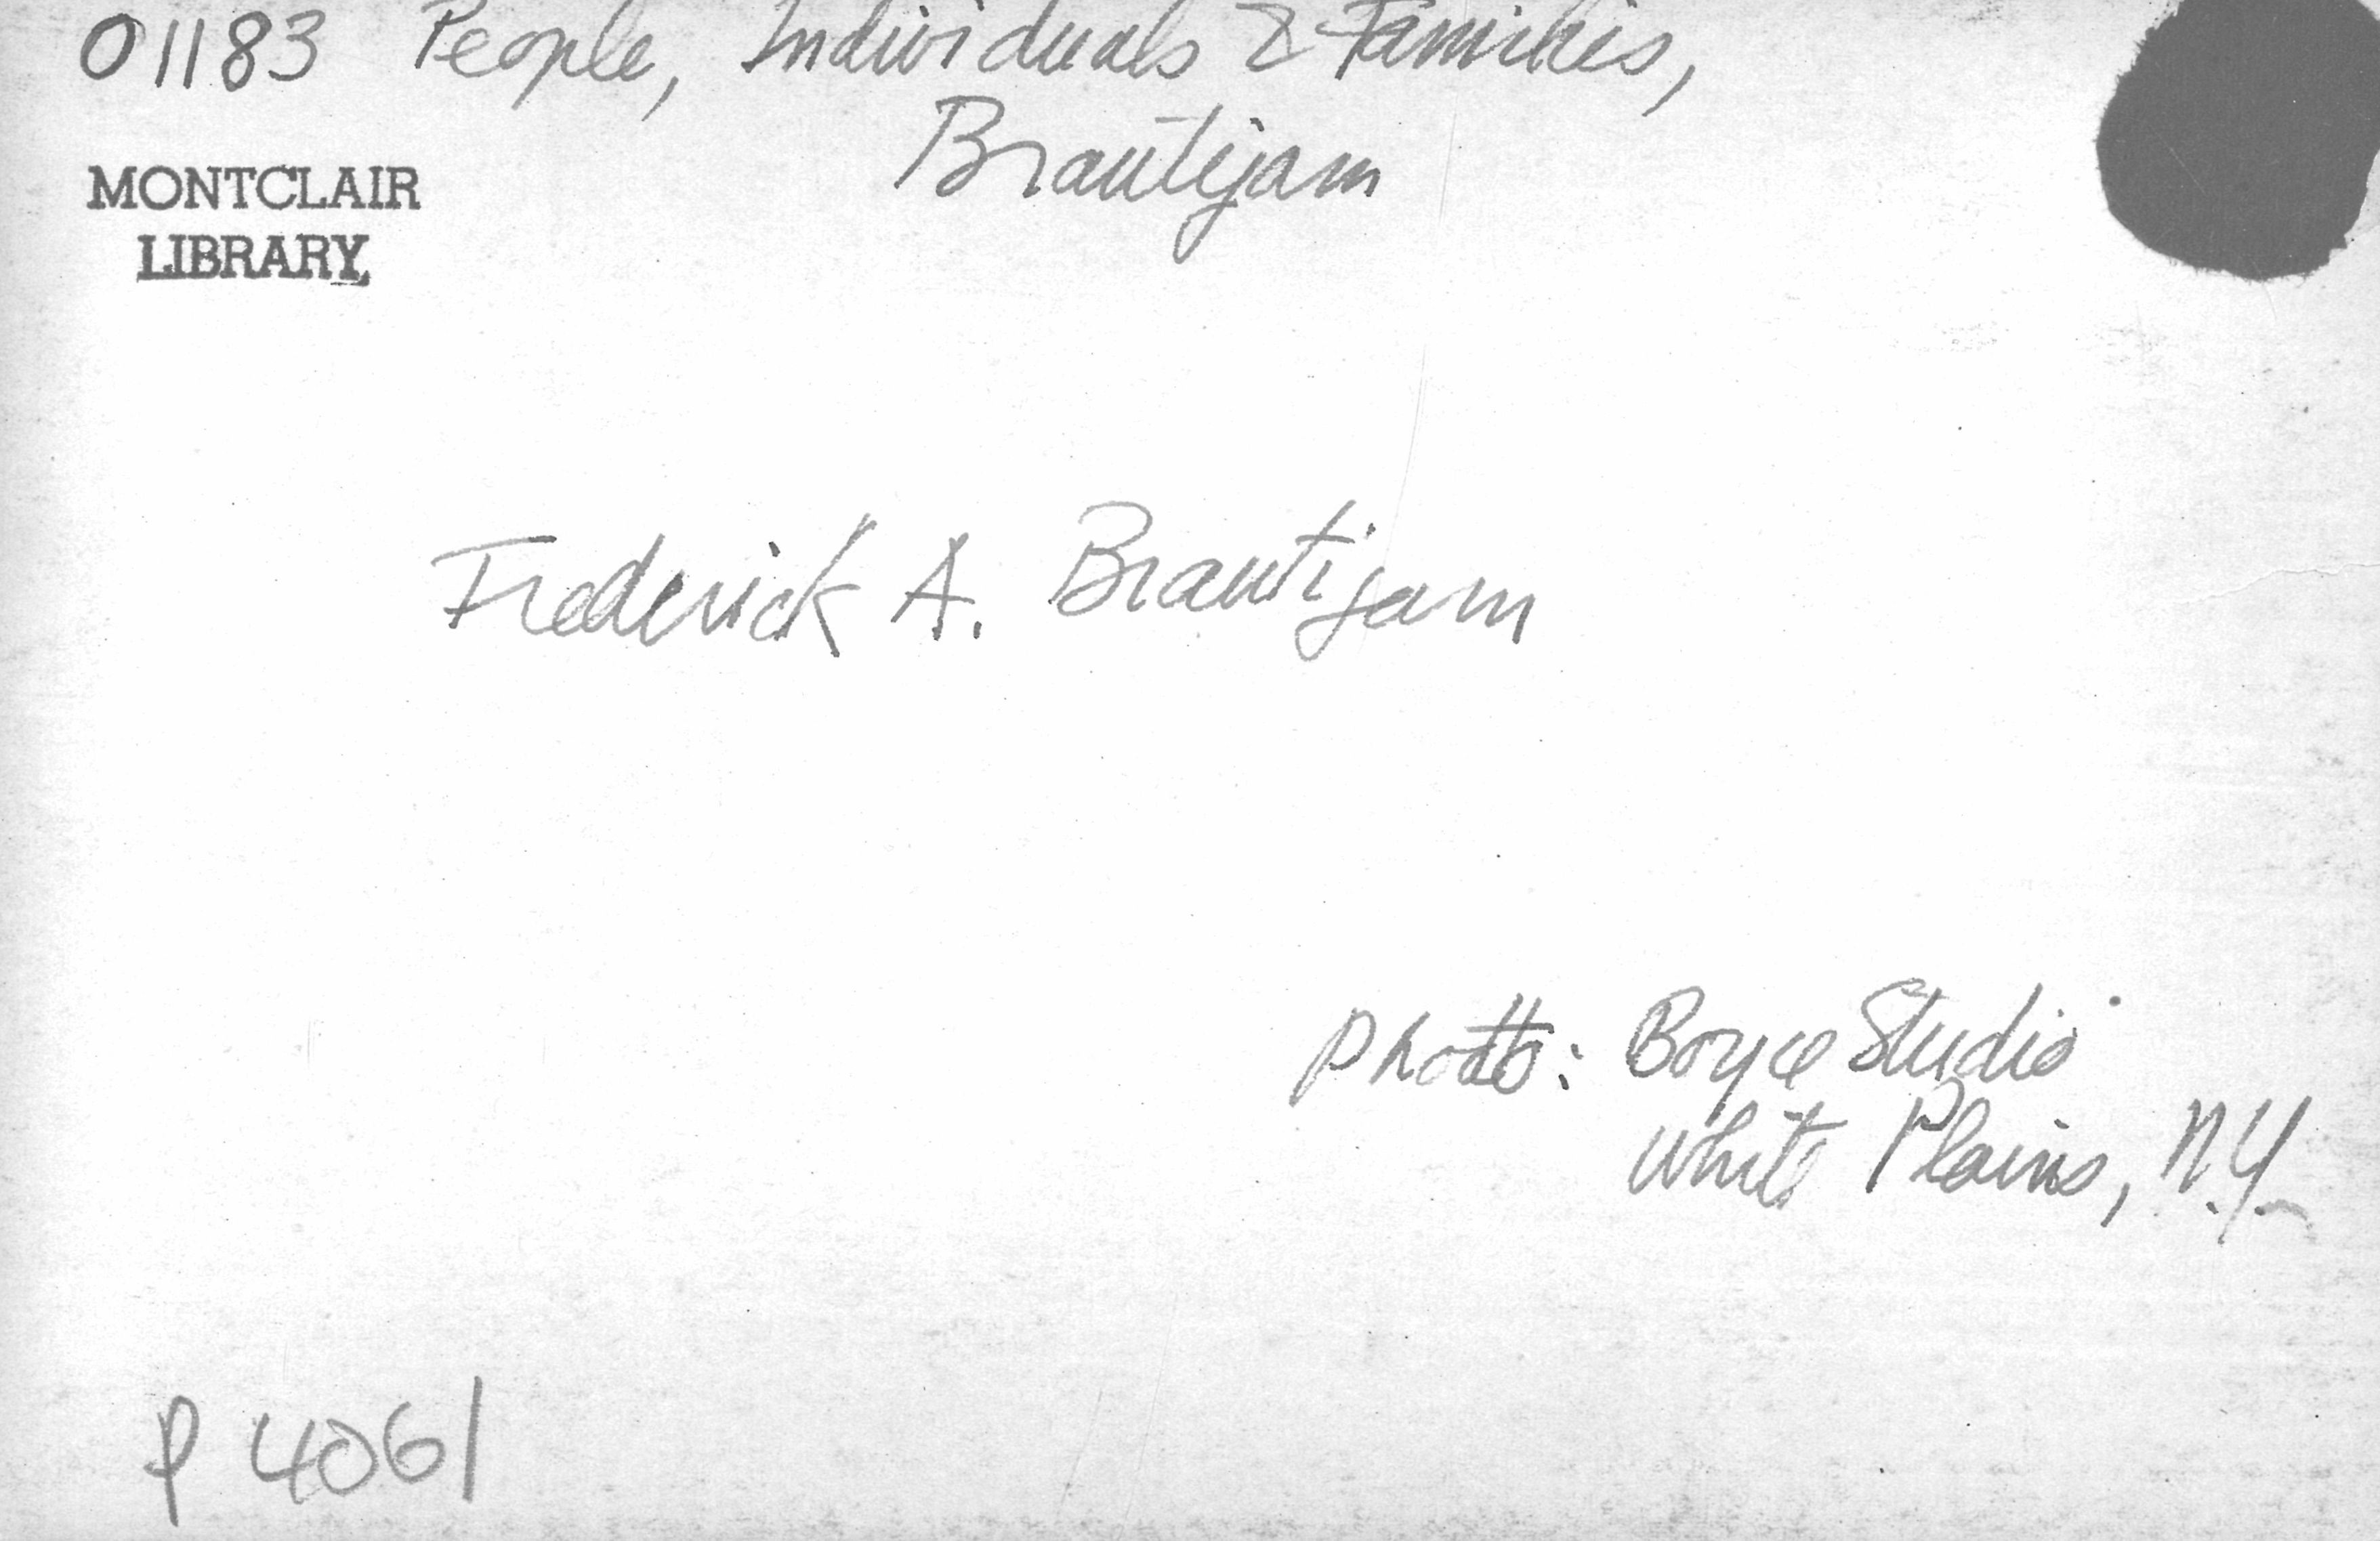 01183 People, Individuals & Families,
Brautijam
MONTCLAIR
LIBRARY
Frederick A. Brautijam
Photo: Boyce Studio
White Plains, N.Y.
P 4061